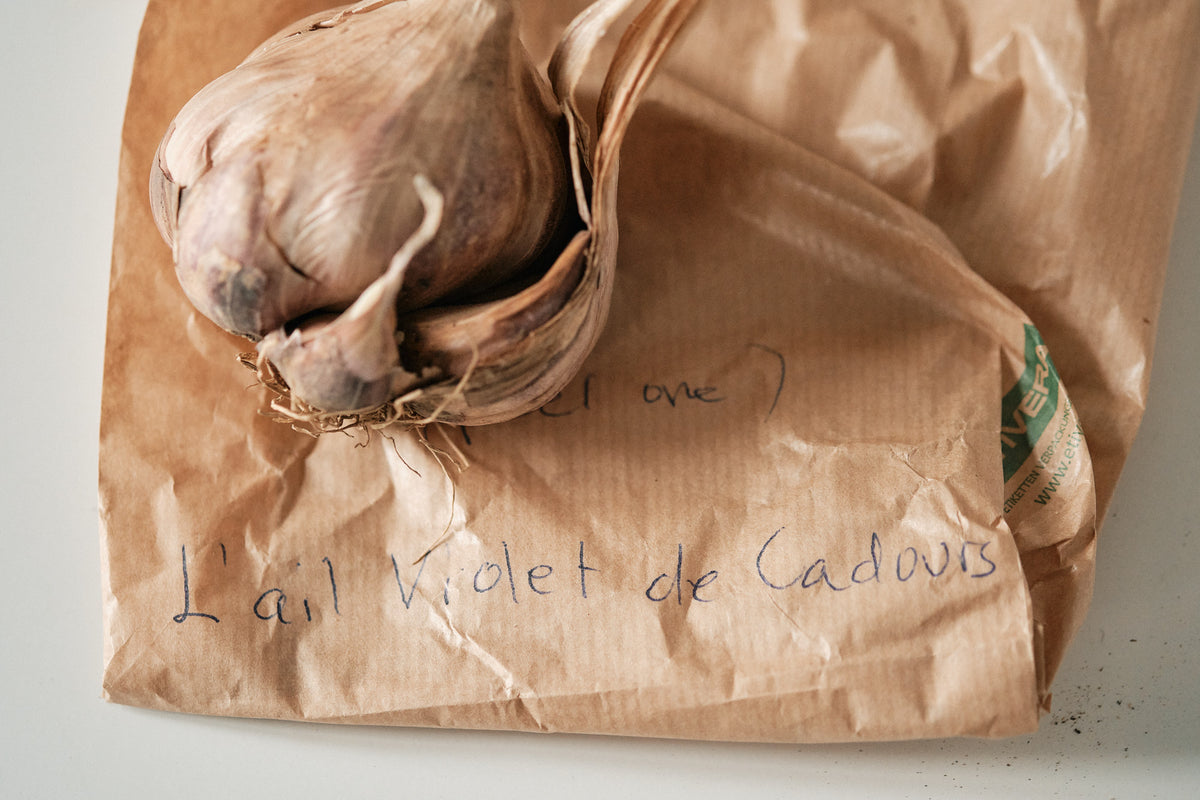 one )
L'ail Violet de Cadours
TIVERA
ETIKETTEN VERPACKUNG
www.etiv